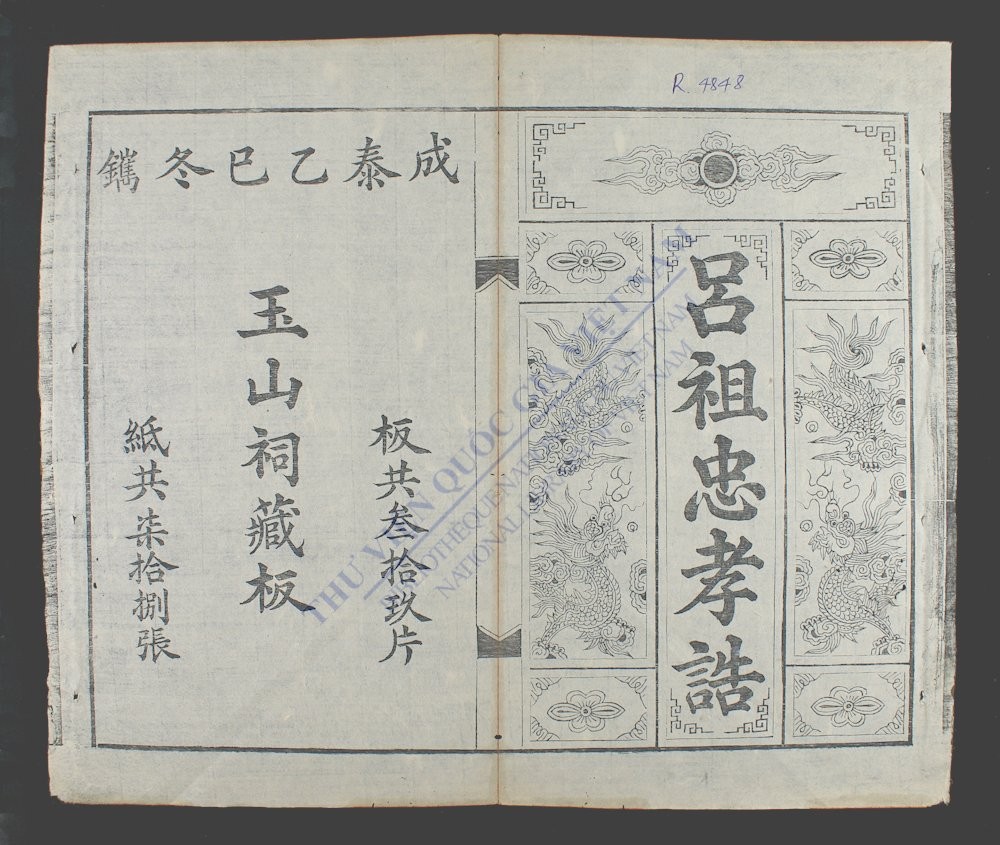 R. 4848
呂祖忠孝誥
成泰乙巳冬鐫
板共叁拾玖片
玉山祠藏板
紙共柒拾捌張
THƯ VIỆN QUỐC GIA VIỆT NAM
BIBLIOTHÈQUE NATIONALE DU VIET NAM
NATIONAL LIBRARY OF VIET NAM